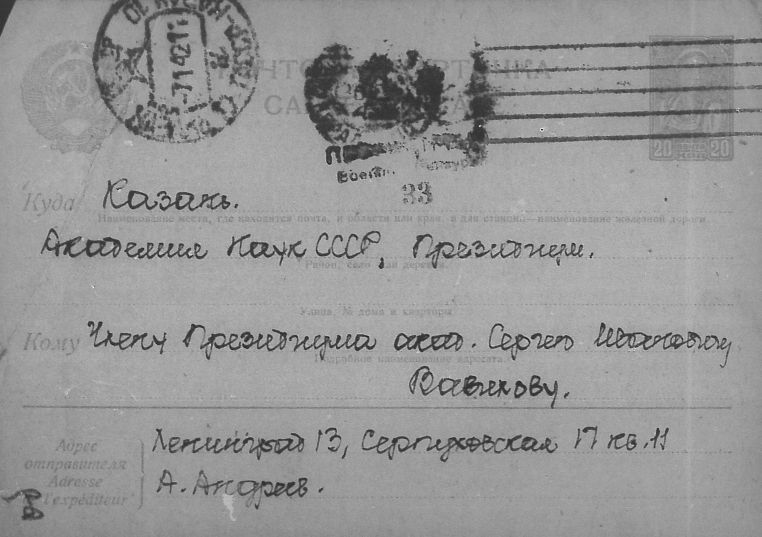 ПОЧТОВАЯ КАРТОЧКА
20 20
33
Куда Казань.
Наименование места, где находится почта, и области или края, а для станции—наименование железной дороги
Академия Наук СССР, Президиум.
Район, село или деревня.
Улица, № дома и квартиры
Кому Члену Президиума акад. Сергею Ивановичу
Подробное наименование адресата
Вавилову.
Адрес отправителя
Adresse de l'expéditeur
Ленинград 13, Серпуховская 17 кв. 11
А. Андреев.